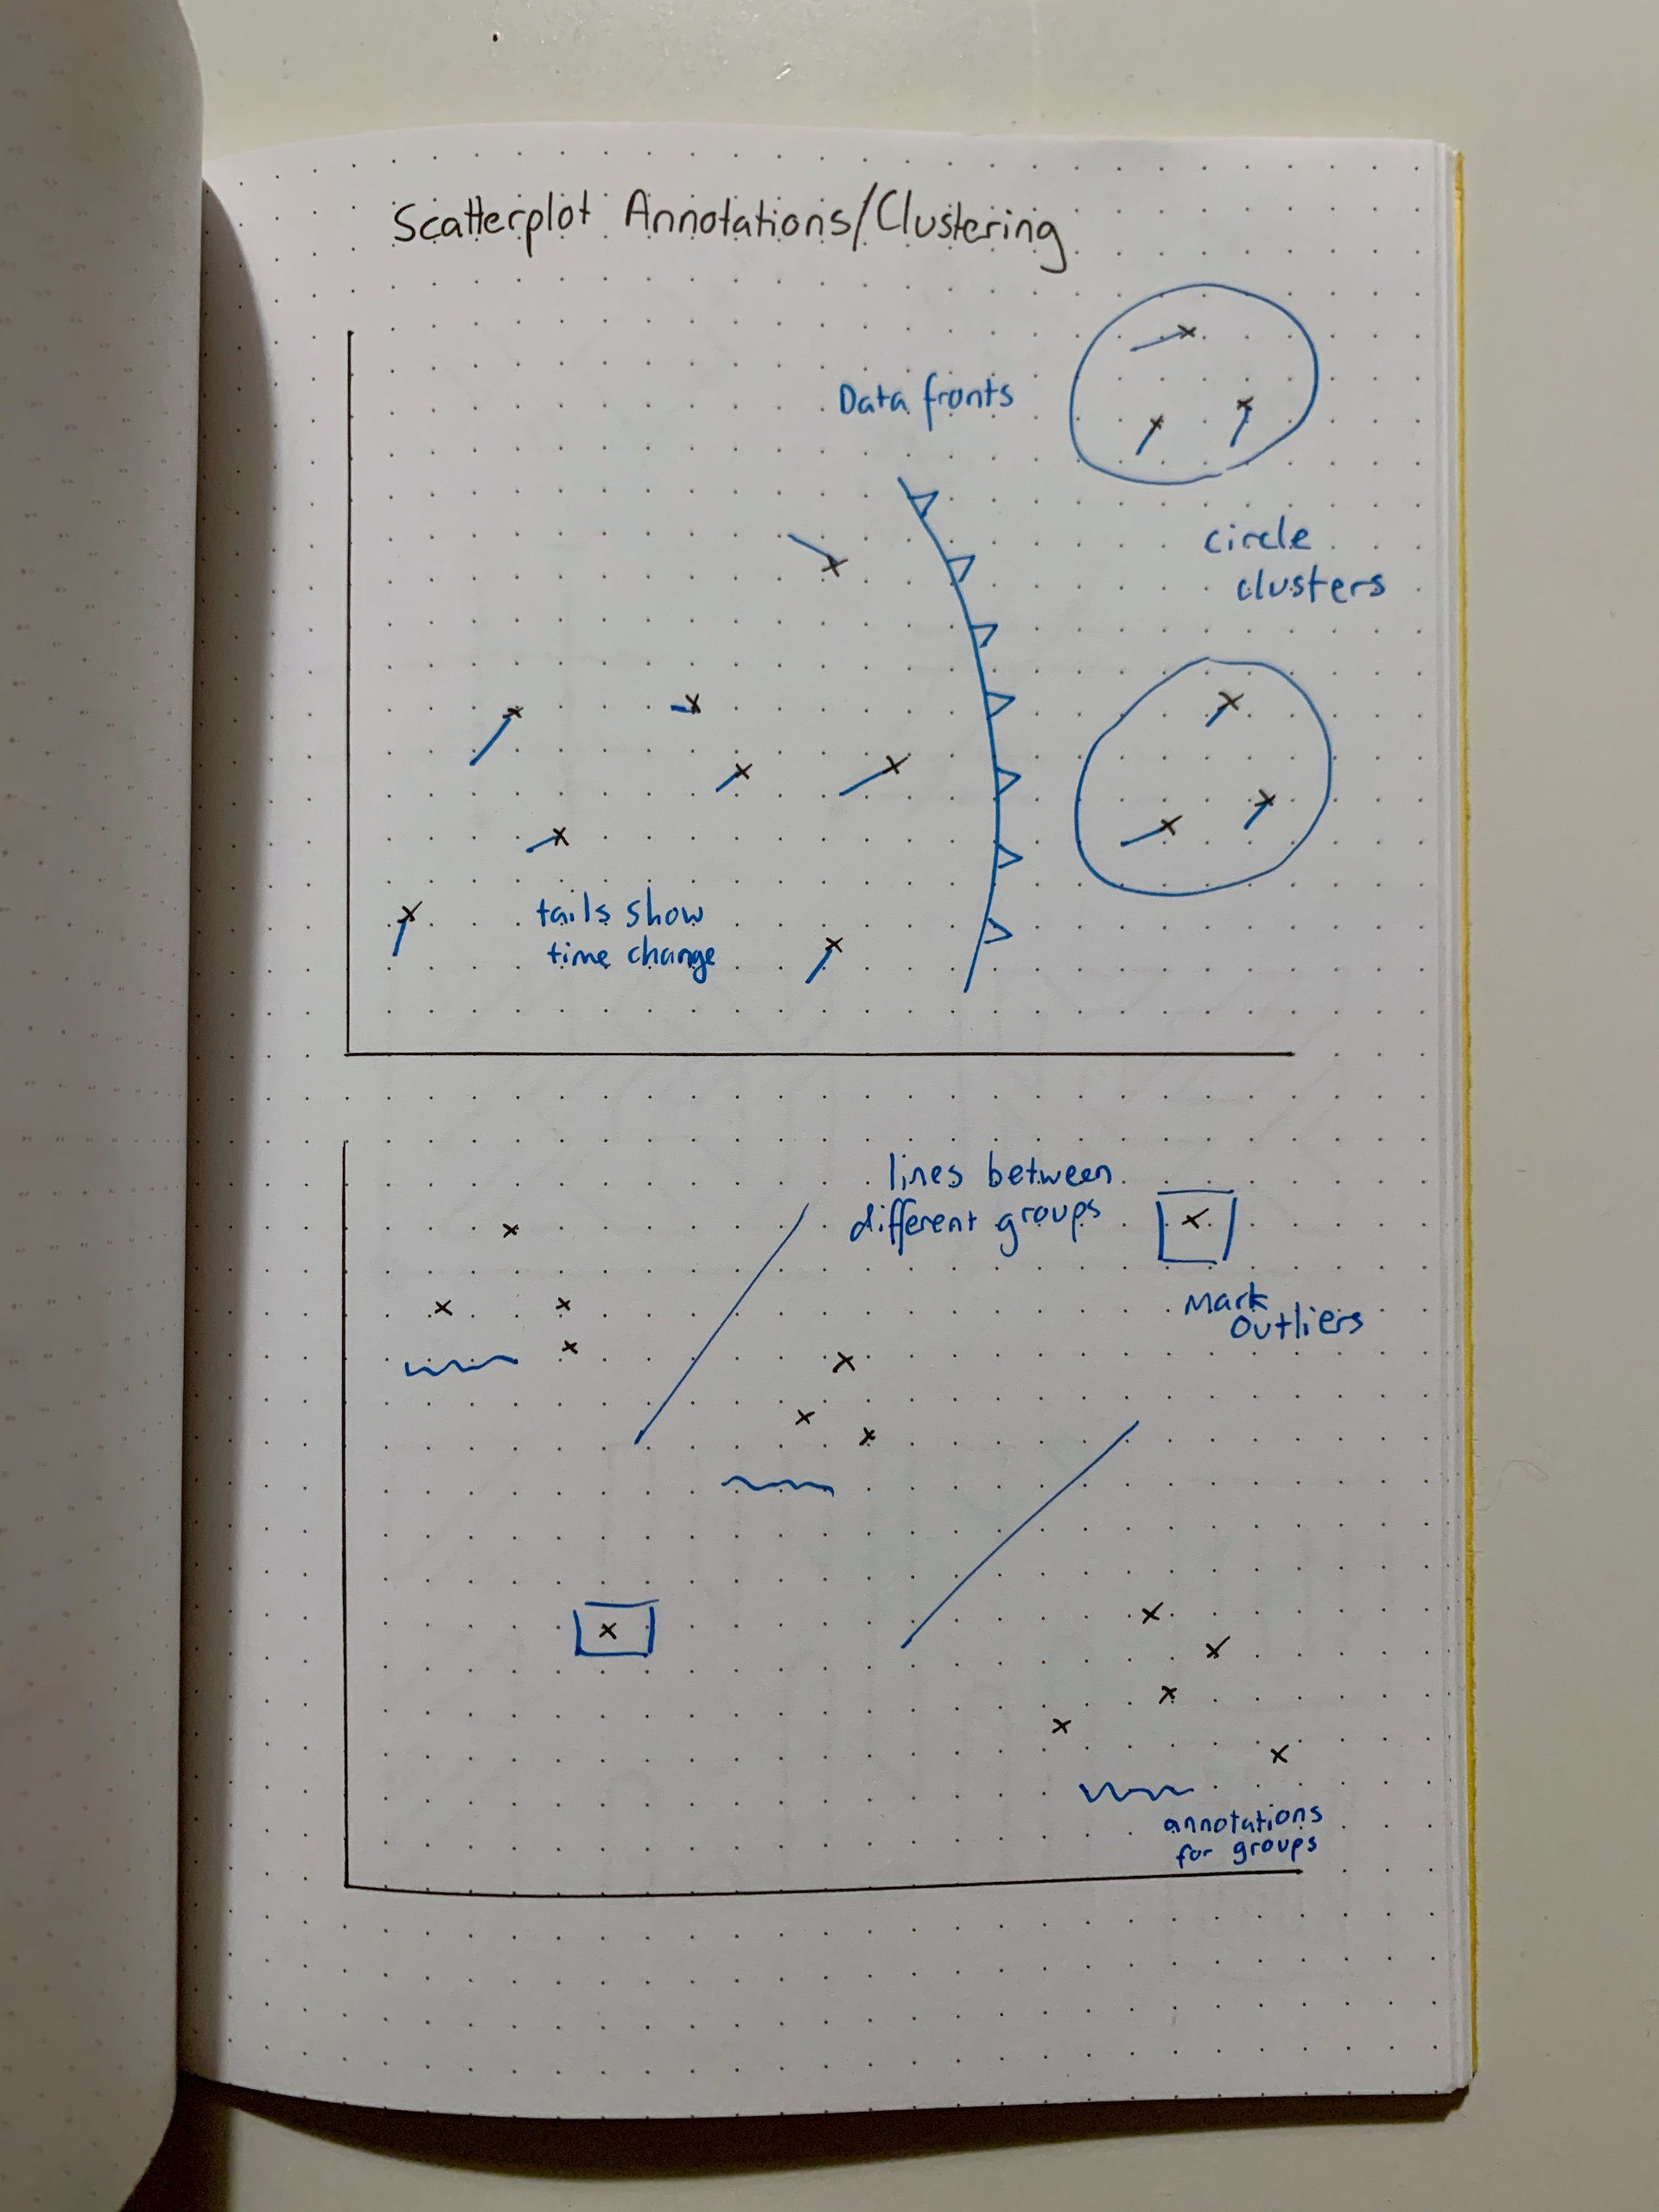 Scatterplot Annotations/Clustering
Data fronts
circle
clusters
tails show
time change
lines between
different groups
Mark
Outliers
annotations
for groups